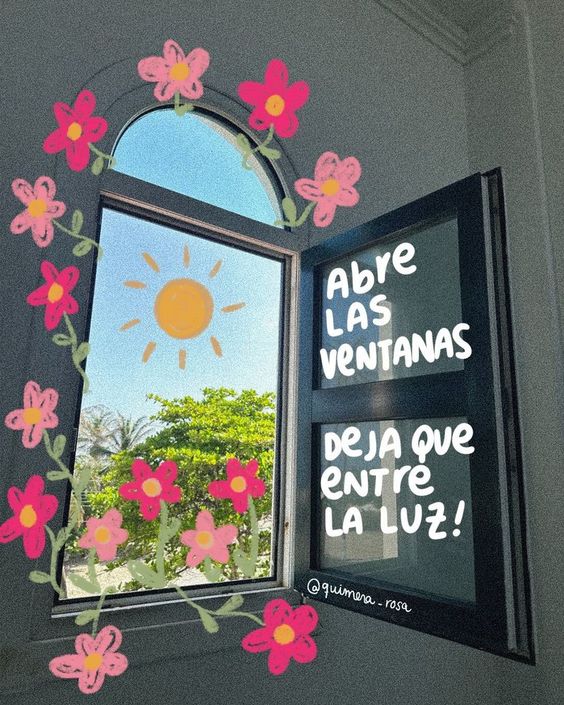 Abre
LAS
VENTANAS
DEJA QUE
ENTRE
LA LUZ!
@quimera_rosa